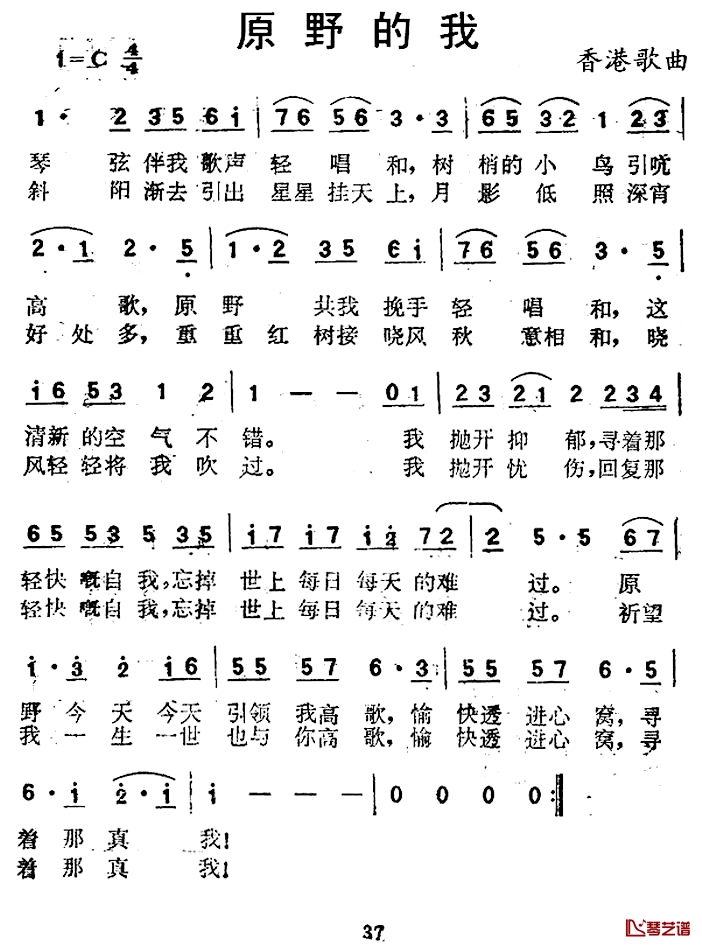 原野的我
1=C 4/4
香港歌曲
1· 2 35 61 | 76 56 3·3 | 65 32 1 23 |
琴 弦伴我歌声轻 唱和，树 梢的小 鸟引吭
斜 阳渐去引出 星星挂天上，月 影 低 照深宵
2·1 2·5 | 1·2 35 61 | 76 56 3·5 |
高 歌，原野 共我 挽手轻 唱 和，这
好处多，重重红 树接 晓风秋 意相和，晓
16 53 1 2 | 1 — — 01 | 23 21 2 234 |
清新的空气不错。 我 抛开抑 郁，寻着那
风轻轻将我吹过。 我 抛开忧 伤，回复那
65 53 5 35 | 17 17 12 72 | 2 5·5 67 |
轻快嘅自我，忘掉 世上每日每天的难 过。原
轻快嘅自我，忘掉 世上每日每天的难 过。祈望
1·3 2 16 | 55 57 6·3 | 55 57 6·5 |
野今天今天 引领我高歌，愉 快透进心窝，寻
我一生一世 也与你高歌，愉 快透进心窝，寻
6·1 2·1 | 1 — — — | 0 0 0 0 :|
着那真 我！
着那真 我！
37
琴艺谱